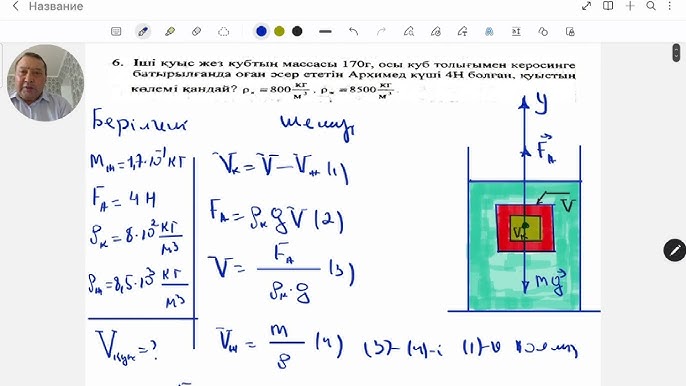 Название
6. Іші қуыс жез кубтың массасы 170г, осы куб толығымен керосинге
батырылғанда оған эсер ететін Архимед күші 4Н болған, қуыстың
көлемі қандай? ρ = 800 кг/м³. ρ = 8500 кг/м³.
Берілгені
m_ж = 1,7·10⁻¹ кг
F_A = 4 Н
ρ_к = 8·10² кг/м³
ρ_ж = 8,5·10³ кг/м³
V_қуыс = ?
Шешуі
V_к = V – V_ж (1)
F_A = ρ_к g V (2)
V = F_A / ρ_к · g (3)
V_ж = m / ρ (4) (3)-(4)-і (1)-ге
y
F_A
V
V_к
mg